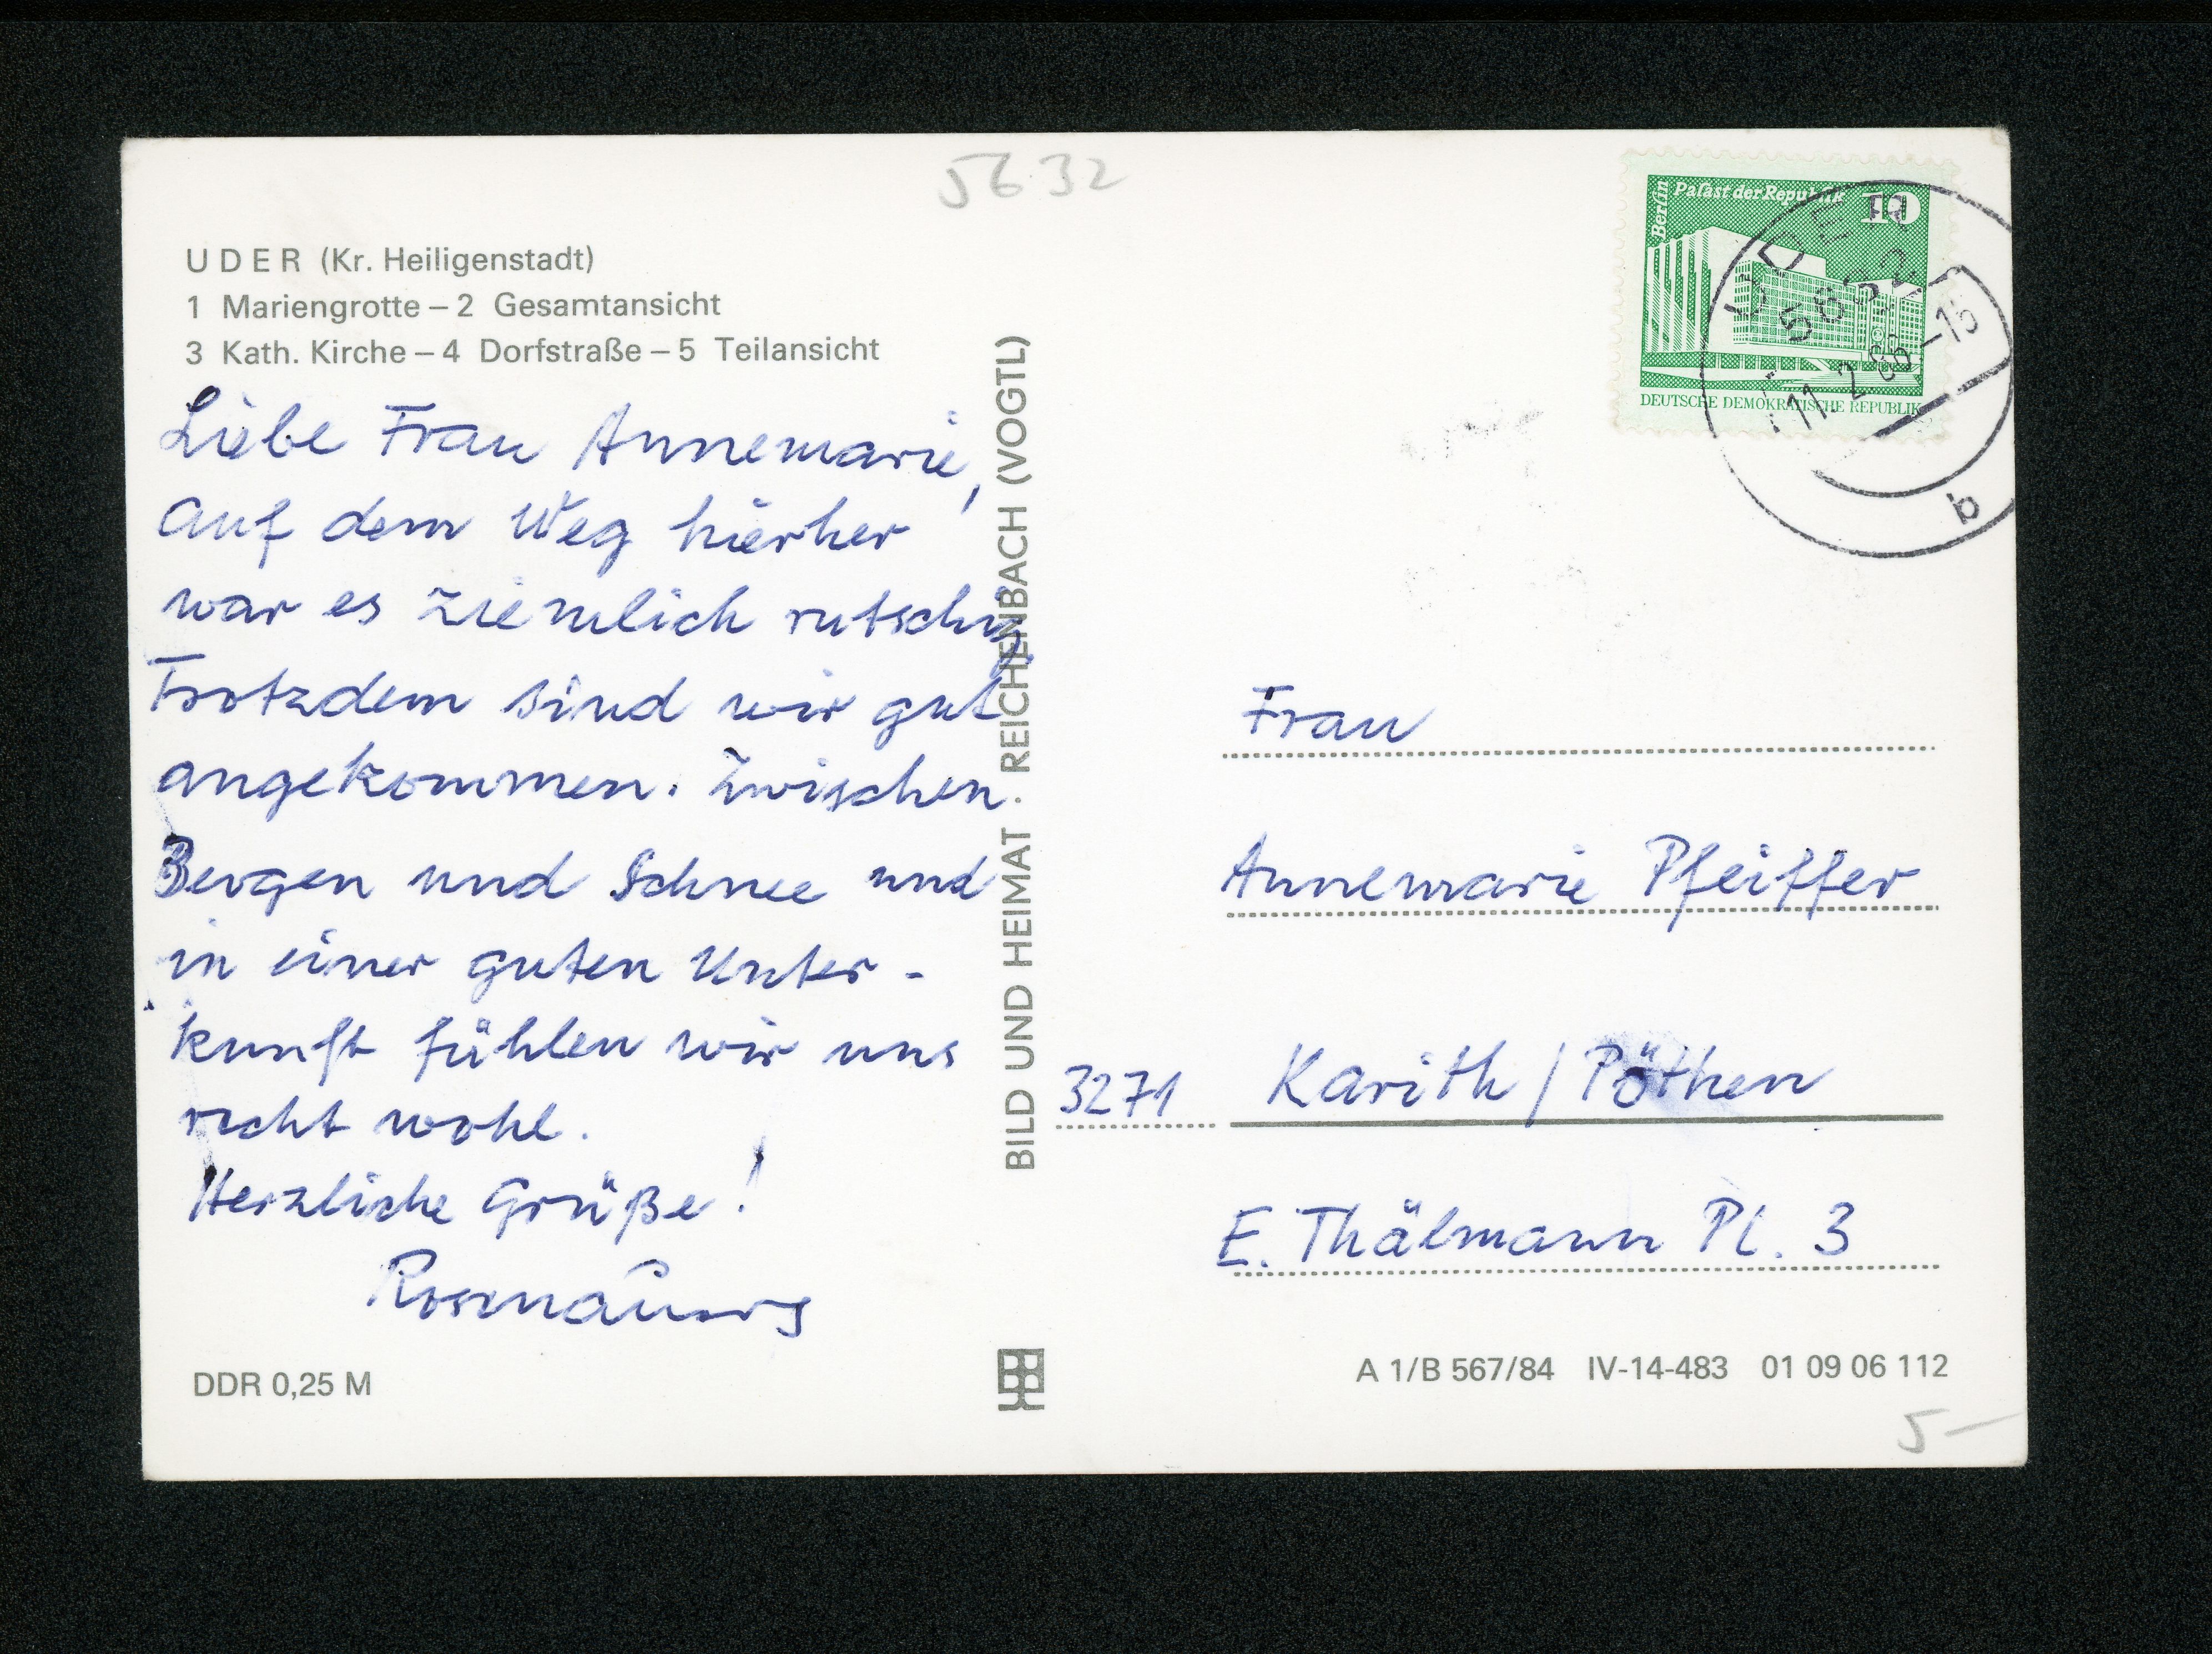 5632
UDER (Kr. Heiligenstadt)
1 Mariengrotte – 2 Gesamtansicht
3 Kath. Kirche – 4 Dorfstraße – 5 Teilansicht
Liebe Frau Annemarie,
auf dem Weg hierher
war es ziemlich rutschig.
Trotzdem sind wir gut
angekommen. Zwischen
Bergen und Schnee und
in einer guten Unter-
kunft fühlen wir uns
recht wohl.
Herzliche Grüße!
DDR 0,25 M
BILD UND HEIMAT · REICHENBACH (VOGTL)
Berlin
Palast der Republik
10
DEUTSCHE DEMOKRATISCHE REPUBLIK
UDER
5632
11.2.86-15
b
Frau
Annemarie Pfeiffer
3271 Karith / Pöthen
E. Thälmann Pl. 3
A 1/B 567/84 IV-14-483 01 09 06 112
5–